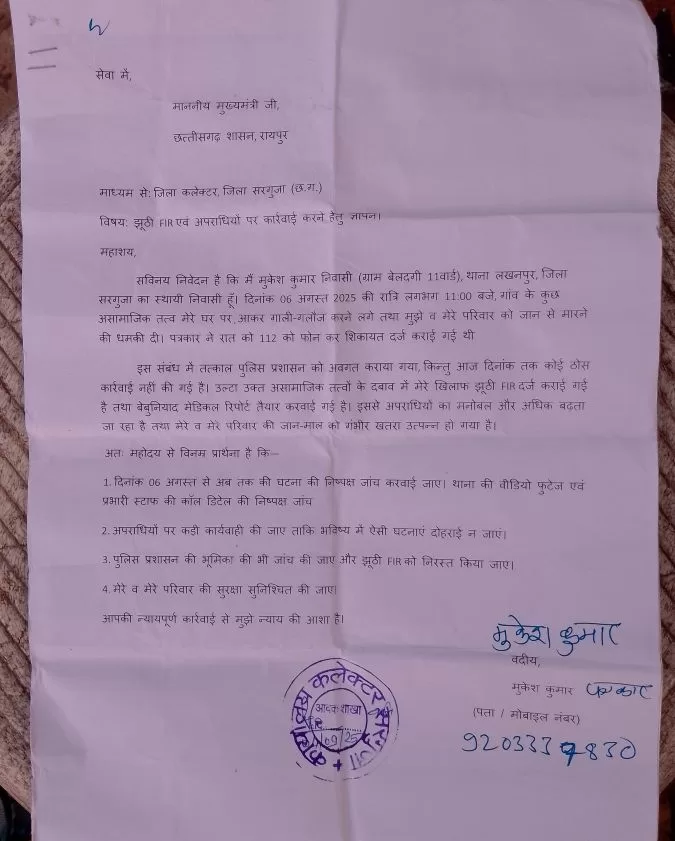 सेवा में,
माननीय मुख्यमंत्री जी,
छत्तीसगढ़ शासन, रायपुर
माध्यम से: जिला कलेक्टर, जिला सरगुजा (छ.ग.)
विषय: झूठी FIR एवं अपराधियों पर कार्रवाई करने हेतु ज्ञापन।
महाशय,
सविनय निवेदन है कि मैं मुकेश कुमार निवासी (ग्राम बेलदगी 11वार्ड), थाना लखनपुर, जिला
सरगुजा का स्थायी निवासी हूँ। दिनांक 06 अगस्त 2025 की रात्रि लगभग 11:00 बजे, गांव के कुछ
असामाजिक तत्व मेरे घर पर, आकर गाली-गलौज करने लगे तथा मुझे व मेरे परिवार को जान से मारने
की धमकी दी। पत्रकार ने रात को 112 को फोन कर शिकायत दर्ज कराई गई थी
इस संबंध में तत्काल पुलिस प्रशासन को अवगत कराया गया, किन्तु आज दिनांक तक कोई ठोस
कार्रवाई नहीं की गई है। उल्टा उक्त असामाजिक तत्वों के दबाव में मेरे खिलाफ झूठी FIR दर्ज कराई गई
है तथा बेबुनियाद मेडिकल रिपोर्ट तैयार करवाई गई है। इससे अपराधियों का मनोबल और अधिक बढ़ता
जा रहा है तथा मेरे व मेरे परिवार की जान-माल को गंभीर खतरा उत्पन्न हो गया है।
अतः महोदय से विनम्र प्रार्थना है कि—
1. दिनांक 06 अगस्त से अब तक की घटना की निष्पक्ष जांच करवाई जाए। थाना की वीडियो फुटेज एवं
प्रभारी स्टाफ की कॉल डिटेल की निष्पक्ष जांच
2. अपराधियों पर कड़ी कार्यवाही की जाए ताकि भविष्य में ऐसी घटनाएं दोहराई न जाएं।
3. पुलिस प्रशासन की भूमिका की भी जांच की जाए और झूठी FIR को निरस्त किया जाए।
4. मेरे व मेरे परिवार की सुरक्षा सुनिश्चित की जाए।
आपकी न्यायपूर्ण कार्रवाई से मुझे न्याय की आशा है।
मुकेश कुमार
वदीय,
मुकेश कुमार पत्रकार
(पता / मोबाइल नंबर)
9203339830
कार्यालय कलेक्टर सरगुजा
आवक शाखा
09/25